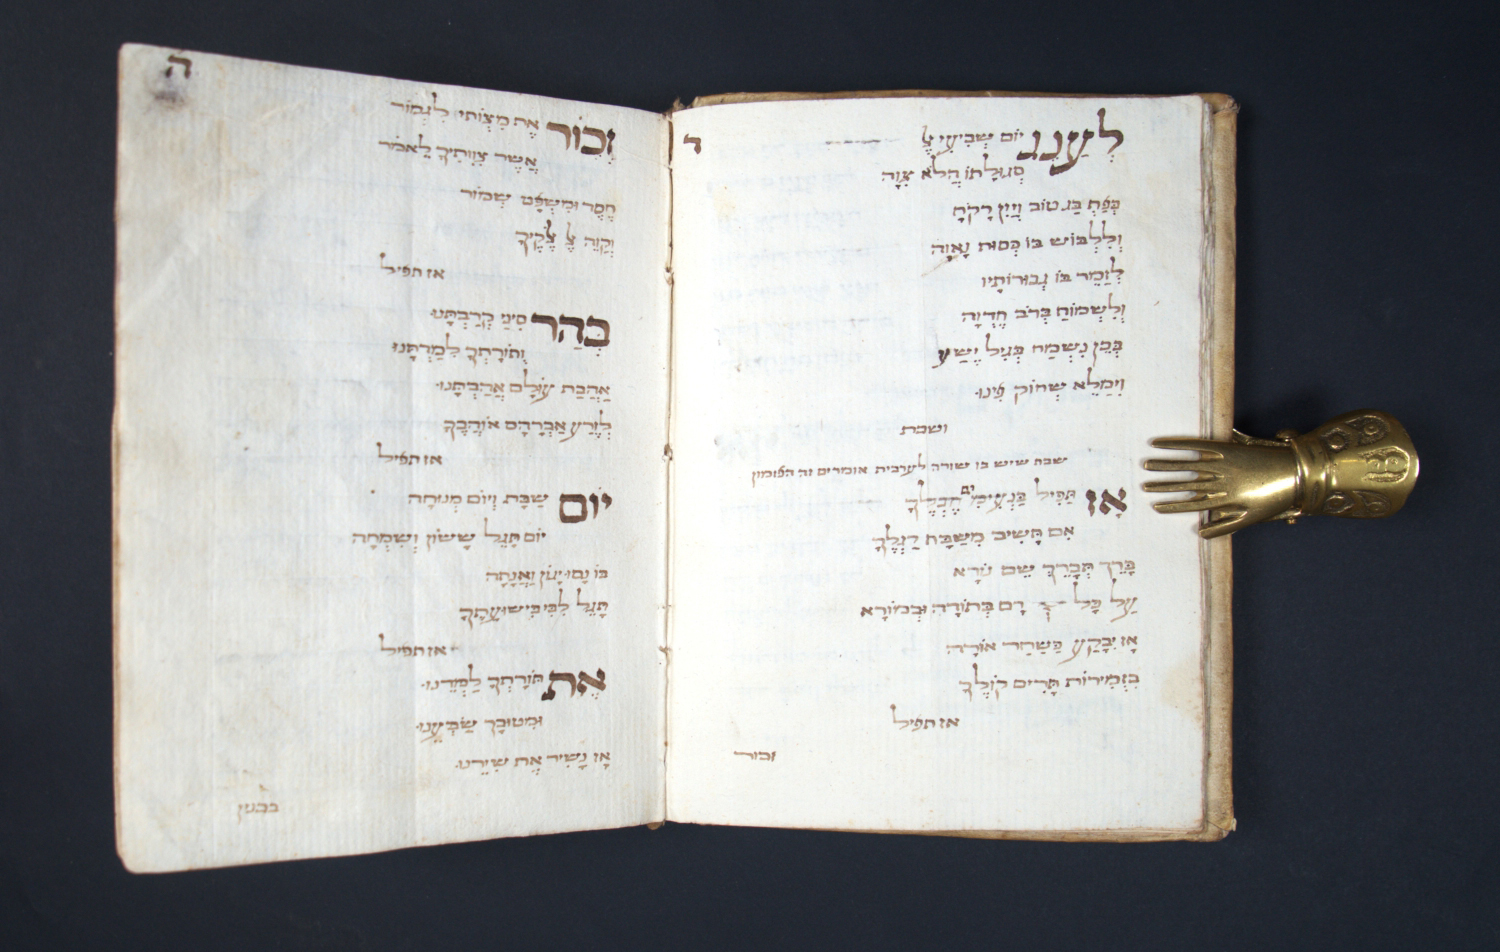 ד
לְעַנֵג יוֹם שְׁבִיעִי
סְגוּלָתוֹ הֲלֹא צִוָּה
בְּפַת בַּג טוֹב וְיַיִן רָקַח
וְלִלְבּוֹשׁ בּוֹ כְּסוּת נָאוָה
לְזַמֵּר בּוֹ גְבוּרוֹתָיו
וְלִשְׂמוֹחַ בְּרֹב חֶדְוָה
בְּכֵן נִשְׂמַח בְּגִיל יֶשַׁע
וְיִמָּלֵא שְׂחוֹק פִּינוּ
ושבת
שבת שיש בו שורה לערבית אומרים זה הפזמון
אָז תַּפִּיל בַּנְּעִימִים חֶבְלֶךָ
אִם תָּשִׁיב מִשַּׁבָּת רַגְלֶךָ
בָּרֵךְ תְּבָרֵךְ שֵׁם נוֹרָא
עַל כָּל רָם בְּתוֹרָה וּבְמוֹרָא
אָז יִבָּקַע כַּשַּׁחַר אוֹרָה
בִּזְמִירוֹת תָּרִים קוֹלֶךָ
אז תפיל
זכור
ה
זְכוֹר אֶת מִצְוֹתַי לִגְמוֹר
אֲשֶׁר צִוִּיתִיךָ לֵאמֹר
חֶסֶד וּמִשְׁפָּט שְׁמוֹר
וְקַוֵּה
אז תפיל
בְּהַר סִינַי קֵרַבְתָּנוּ
וְתוֹרָתְךָ לִמַּדְתָּנוּ
אַהֲבַת עוֹלָם אֲהַבְתָּנוּ
לְזֶרַע אַבְרָהָם אוֹהֲבֶךָ
אז תפיל
יוֹם שַׁבָּת וְיוֹם מְנוּחָה
יוֹם תָּגֵל שָׂשׂוֹן וְשִׂמְחָה
בּוֹ נָסוּ יָגוֹן וַאֲנָחָה
תָּגֵל לִבִּי בִּישׁוּעָתֶךָ
אז תפיל
אֶת תּוֹרָתְךָ לַמְּדֵנוּ
וּמִטּוּבָךְ שַׂבְּעֵנוּ
אָז נָשִׁיר אֶת שִׁירֵנוּ